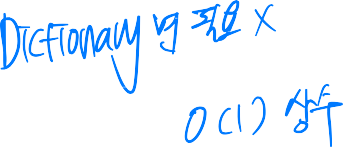 Dictionary 명 필요 X
O(1) 상수